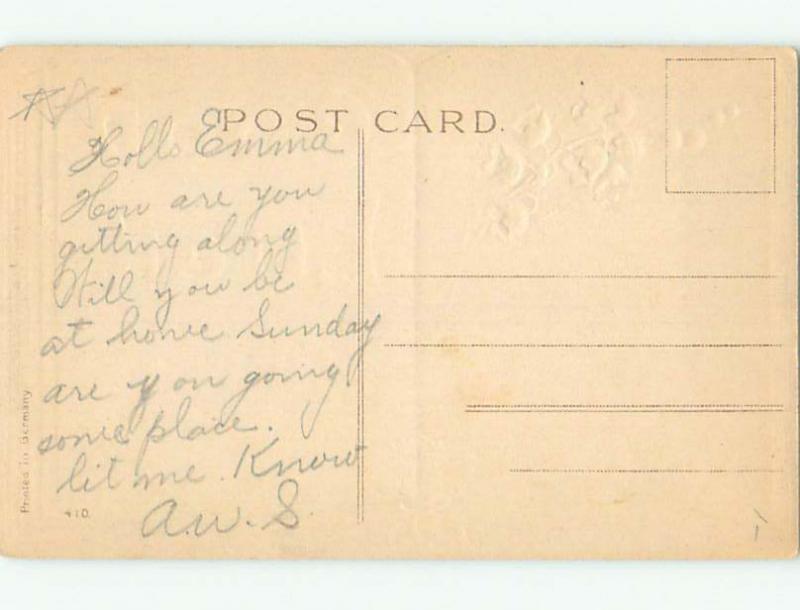 POST CARD.
Hollo Emma
How are you
getting along
Will you be
at home Sunday
are you going
some place.
lit me Know
A.W.S.
Printed in Germany
410.